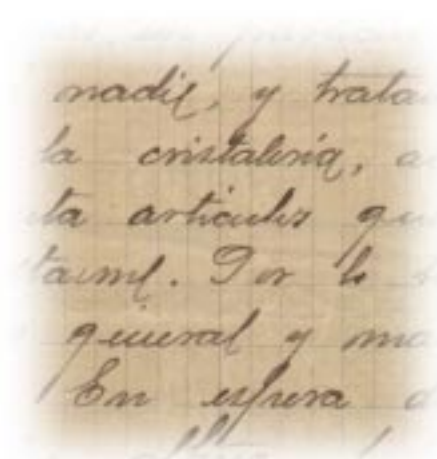 nadie, y trata
la cristaleria, a
ta articulos qu
Por lo
general y ma
En espera d